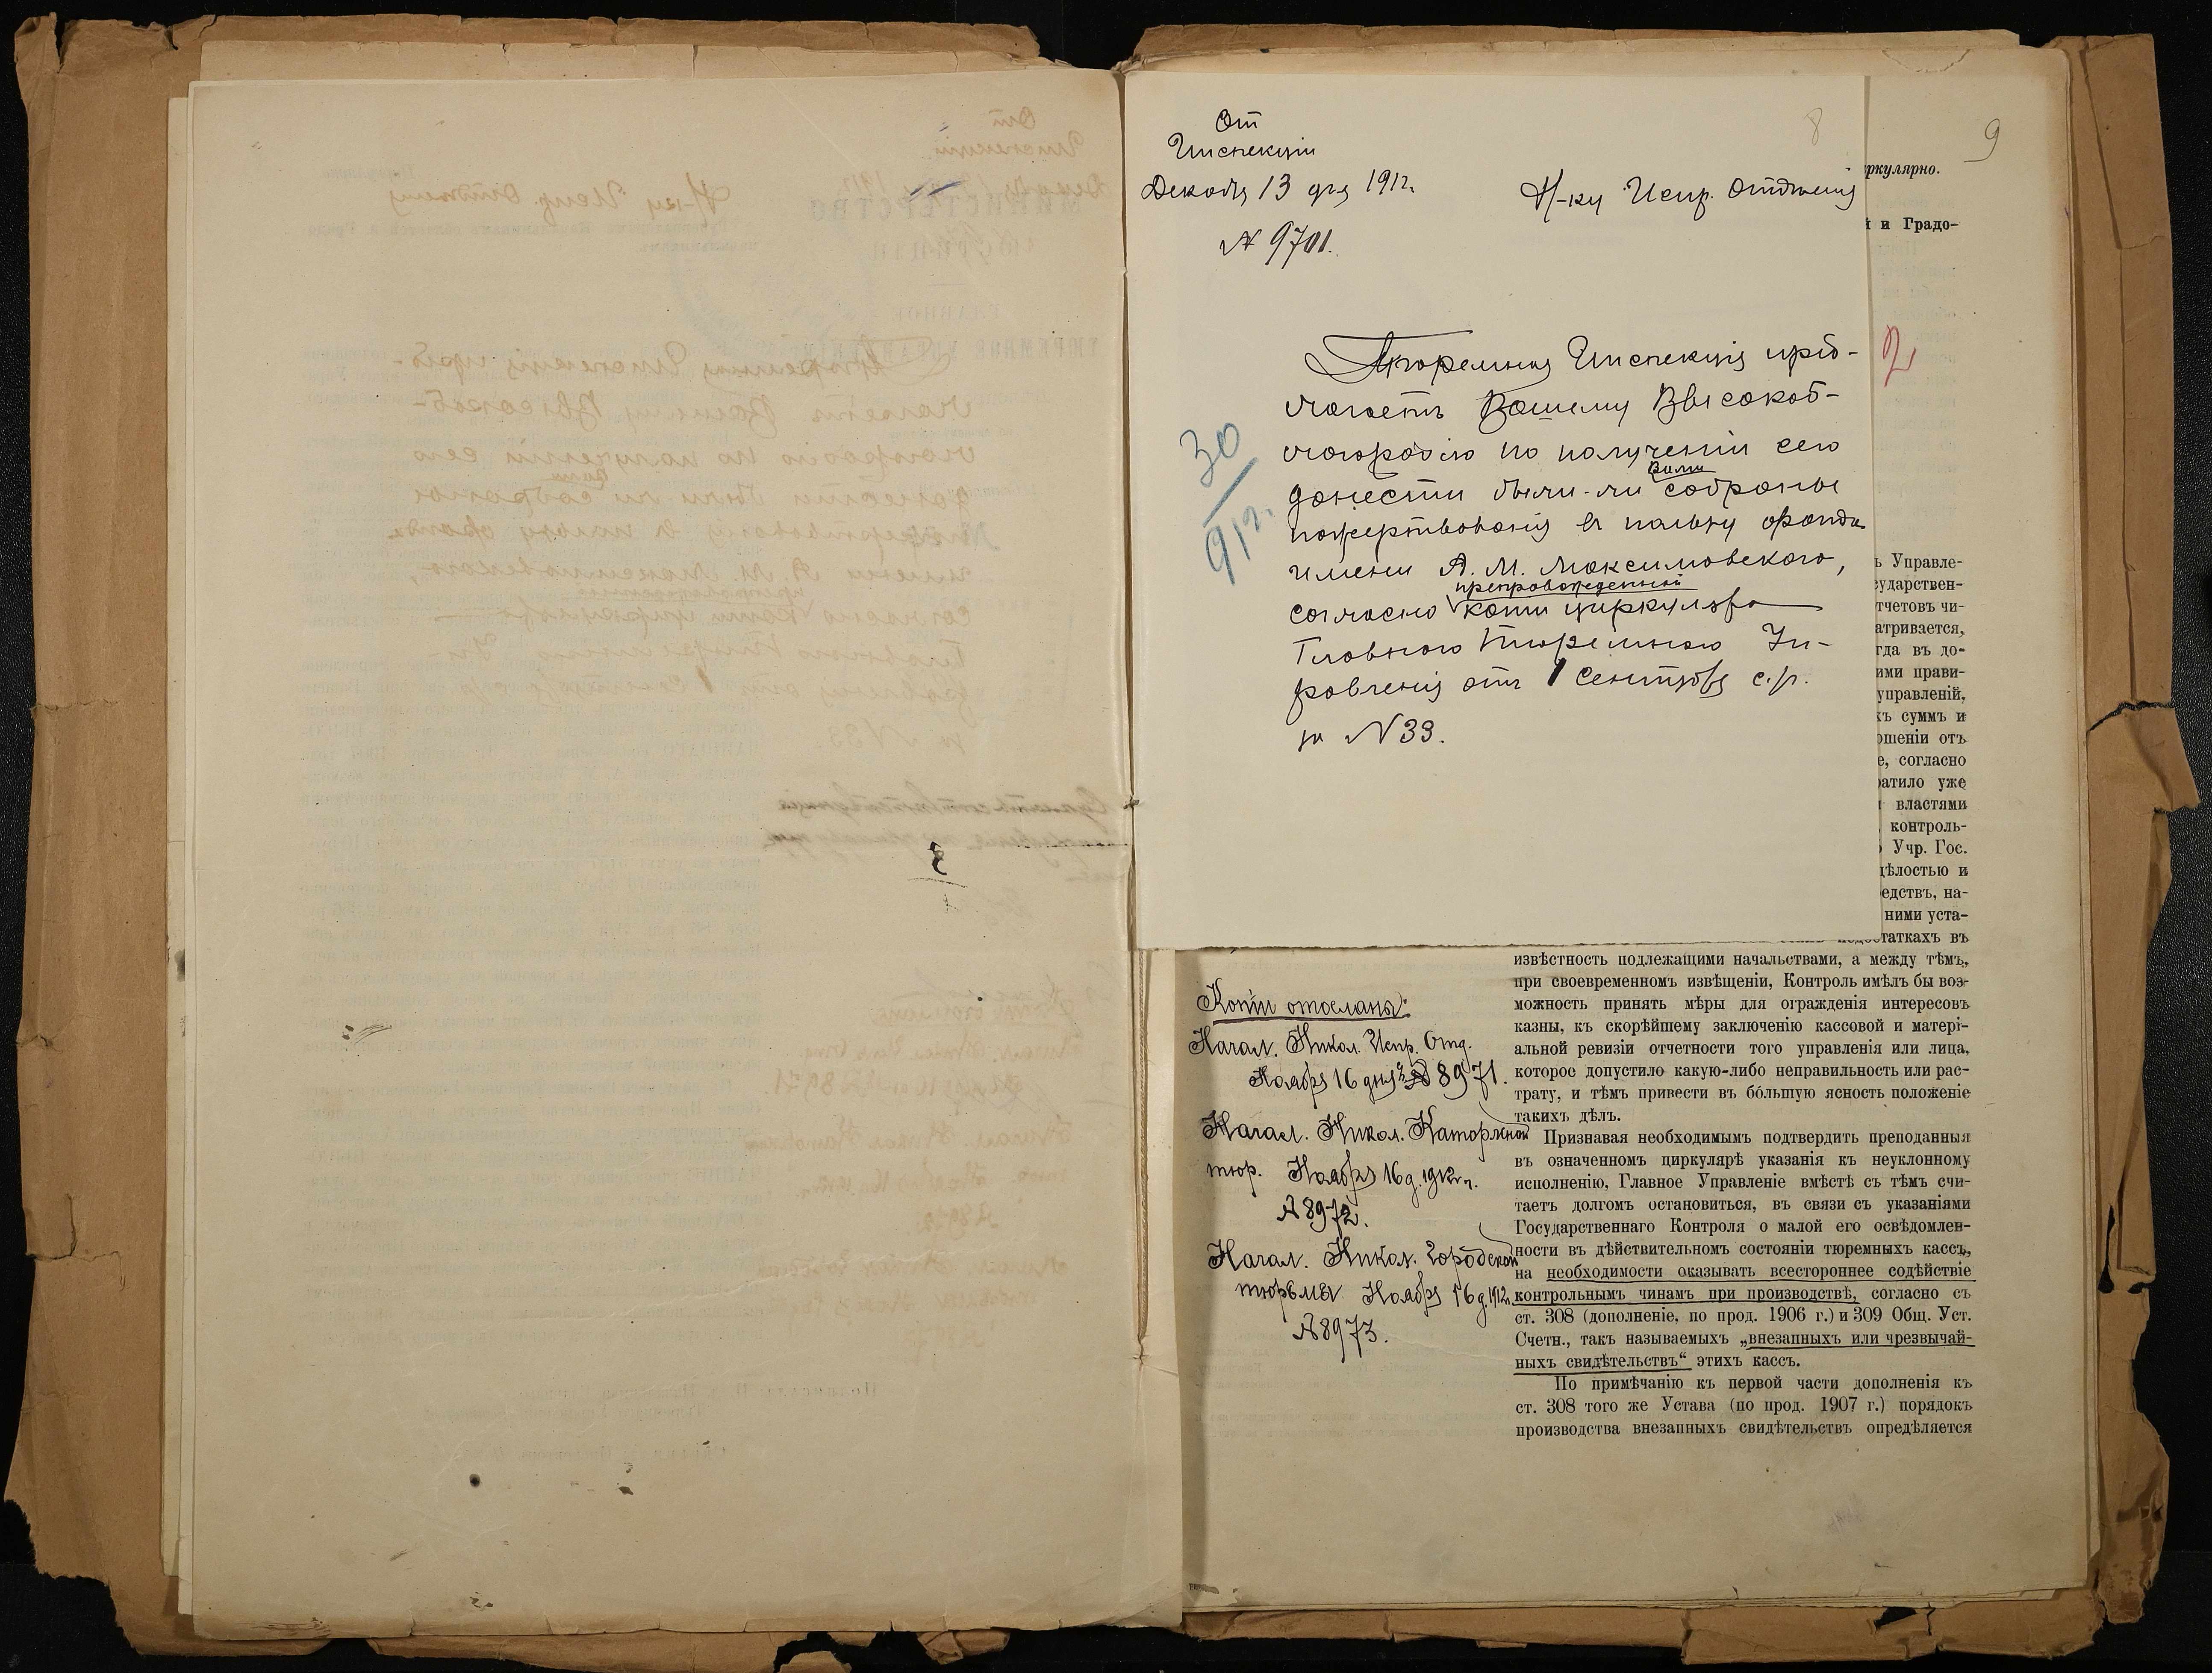 8
9
От
Инспекции
Декабря 13 дня 1912 г.
№ 9701.
Н-ку Испр. Отделения
Тюремная Инспекція пред-
лагаетъ Вашему Высокоб-
лагородію по полученіи сего
донести были-ли Вами собраны
пожертвованія въ пользу фонда
имени А. М. Максимовского,
согласно препровожденной копіи циркуляра
Главного Тюремного Уп-
равленія отъ 1 Сентября с.г.
за №33.
30
912.
2
ркулярно.
и Градо-
ь Управле-
сударствен-
тчетовъ чи-
атривается,
гда въ до-
ими прави-
управленій,
хъ суммъ и
ошеніи отъ
е, согласно
ратило уже
властями
контроль-
Учр. Гос.
цѣлостью и
едствъ, на-
ними уста-
недостаткахъ въ
извѣстность подлежащими начальствами, а между тѣмъ,
при своевременномъ извѣщеніи, Контроль имѣлъ бы воз-
можность принять мѣры для огражденія интересовъ
казны, къ скорѣйшему заключенію кассовой и матері-
альной ревизіи отчетности того управленія или лица,
которое допустило какую-либо неправильность или рас-
трату, и тѣмъ привести въ бо́льшую ясность положеніе
такихъ дѣлъ.
Признавая необходимымъ подтвердить преподанныя
въ означенномъ циркулярѣ указанія къ неуклонному
исполненію, Главное Управленіе вмѣстѣ съ тѣмъ счи-
таетъ долгомъ остановиться, въ связи съ указаніями
Государственнаго Контроля о малой его освѣдомлен-
ности въ дѣйствительномъ состояніи тюремныхъ кассъ,
на необходимости оказывать всестороннее содѣйствіе
контрольнымъ чинамъ при производствѣ, согласно съ
ст. 308 (дополненіе, по прод. 1906 г.) и 309 Общ. Уст.
Счетн., такъ называемыхъ „внезапныхъ или чрезвычай-
ныхъ свидѣтельствъ“ этихъ кассъ.
По примѣчанію къ первой части дополненія къ
ст. 308 того же Устава (по прод. 1907 г.) порядокъ
производства внезапныхъ свидѣтельствъ опредѣляется
Копіи отосланы:
Начал. Никол. Испр. Отд.
Ноября 16 дня № 8971.
Начал. Никол. Каторжной
тюр. Ноября 16 д. 1912 г.
№ 8972.
Начал. Никол. Городской
тюрьмы Ноября 16 д. 1912 г.
№ 8973.